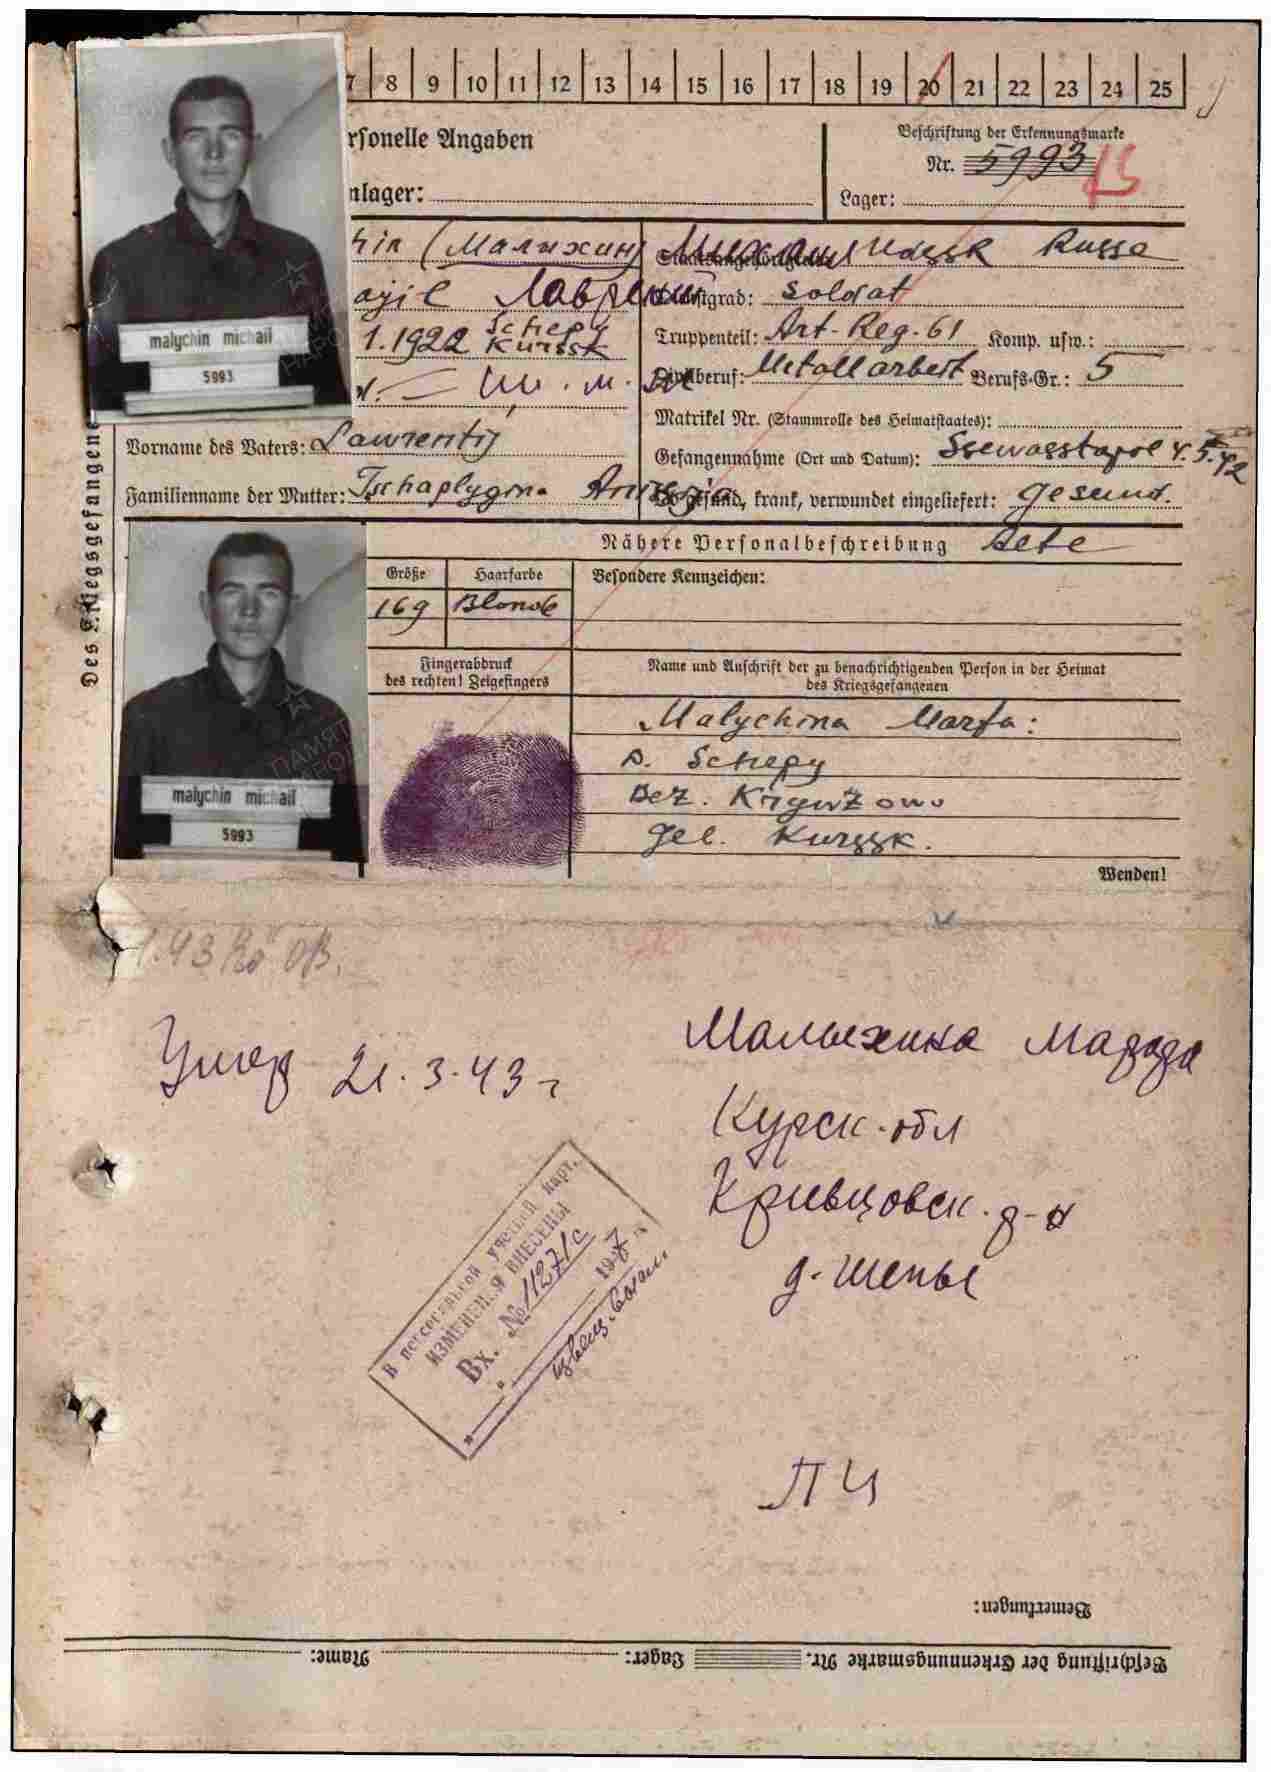 7 8 9 10 11 12 13 14 15 16 17 18 19 20 21 22 23 24 25
rsonelle Angaben
nlager:
Beschriftung der Erkennungsmarke
Nr. 5993
Lager:
malychin michail
5993
hin (Малыхин) Михаил
Udssk Russe
ajil Лаврентий
Dienstgrad: Soldat
1.1922 Schepy Kurssk
Truppenteil: Art-Reg. 61 Komp. usw.:
Zivilberuf: Metallarbeit Berufs-Gr.: 5
Matrikel Nr. (Stammrolle des Heimatstaates):
Vorname des Vaters: Lawrentij
Gefangennahme (Ort und Datum): Ssewasstopol 4.5.42
Familienname der Mutter: Tschaplygina
Ob gesund, krank, verwundet eingeliefert: gesund.
Des Kriegsgefangenen
Nähere Personalbeschreibung
malychin michail
5993
Größe Haarfarbe Besondere Kennzeichen:
169 Blonde
Fingerabdruck
des rechten! Zeigefingers
Name und Anschrift der zu benachrichtigenden Person in der Heimat
des Kriegsgefangenen
Malychina Marfa:
D. Schepy
Bez.
Geb. Kurssk.
Wenden!
Умер 21.3.43 г
Малыхина Марфа
Курск. обл
Кривцовск. р-н
д. Шепы
В персональной учетной карт.
ИЗМЕНЕНИЯ ВНЕСЕНЫ
Вх. № 11271с
ПЧ
Bemerkungen:
Beschriftung der Erkennungsmarke Nr. Lager: Name: